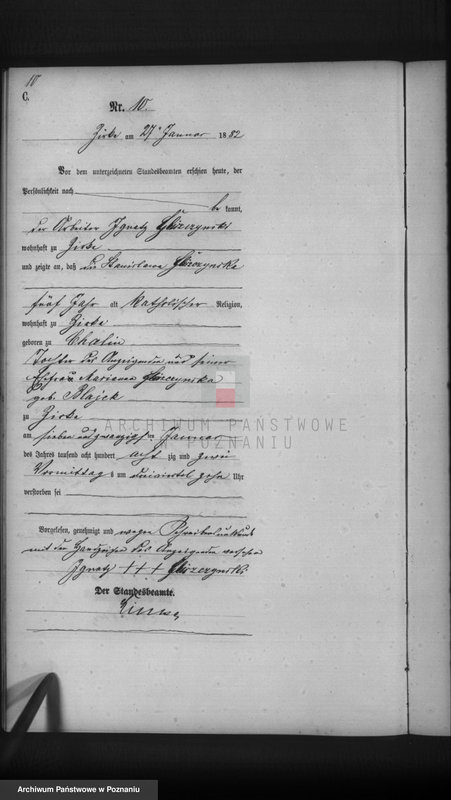 10
C.
Nr. 10.
Zirke am 27ten Januar 1882
Vor dem unterzeichneten Standesbeamten erschien heute, der
Persönlichkeit nach
be kannt,
der Arbeiter Ignatz
wohnhaft zu Zirke
und zeigte an, daß die Stanislawa
fünf Jahr alt katholischer Religion,
wohnhaft zu Zirke
geboren zu Chalin
Tochter des Anzeigenden und seiner
Ehefrau Marianna
geb. Blajek
zu Zirke
am sieben und zwanzigsten Januar
des Jahres tausend acht hundert acht zig und zwei
Vormittags um dreiviertel zehn Uhr
verstorben sei
Vorgelesen, genehmigt und wegen Schreibensunkunde
mit den Handzeichen des Anzeigenden versehen
Ignatz +++
Der Standesbeamte.
ARCHIWUM PAŃSTWOWE
W POZNANIU
Archiwum Państwowe w Poznaniu